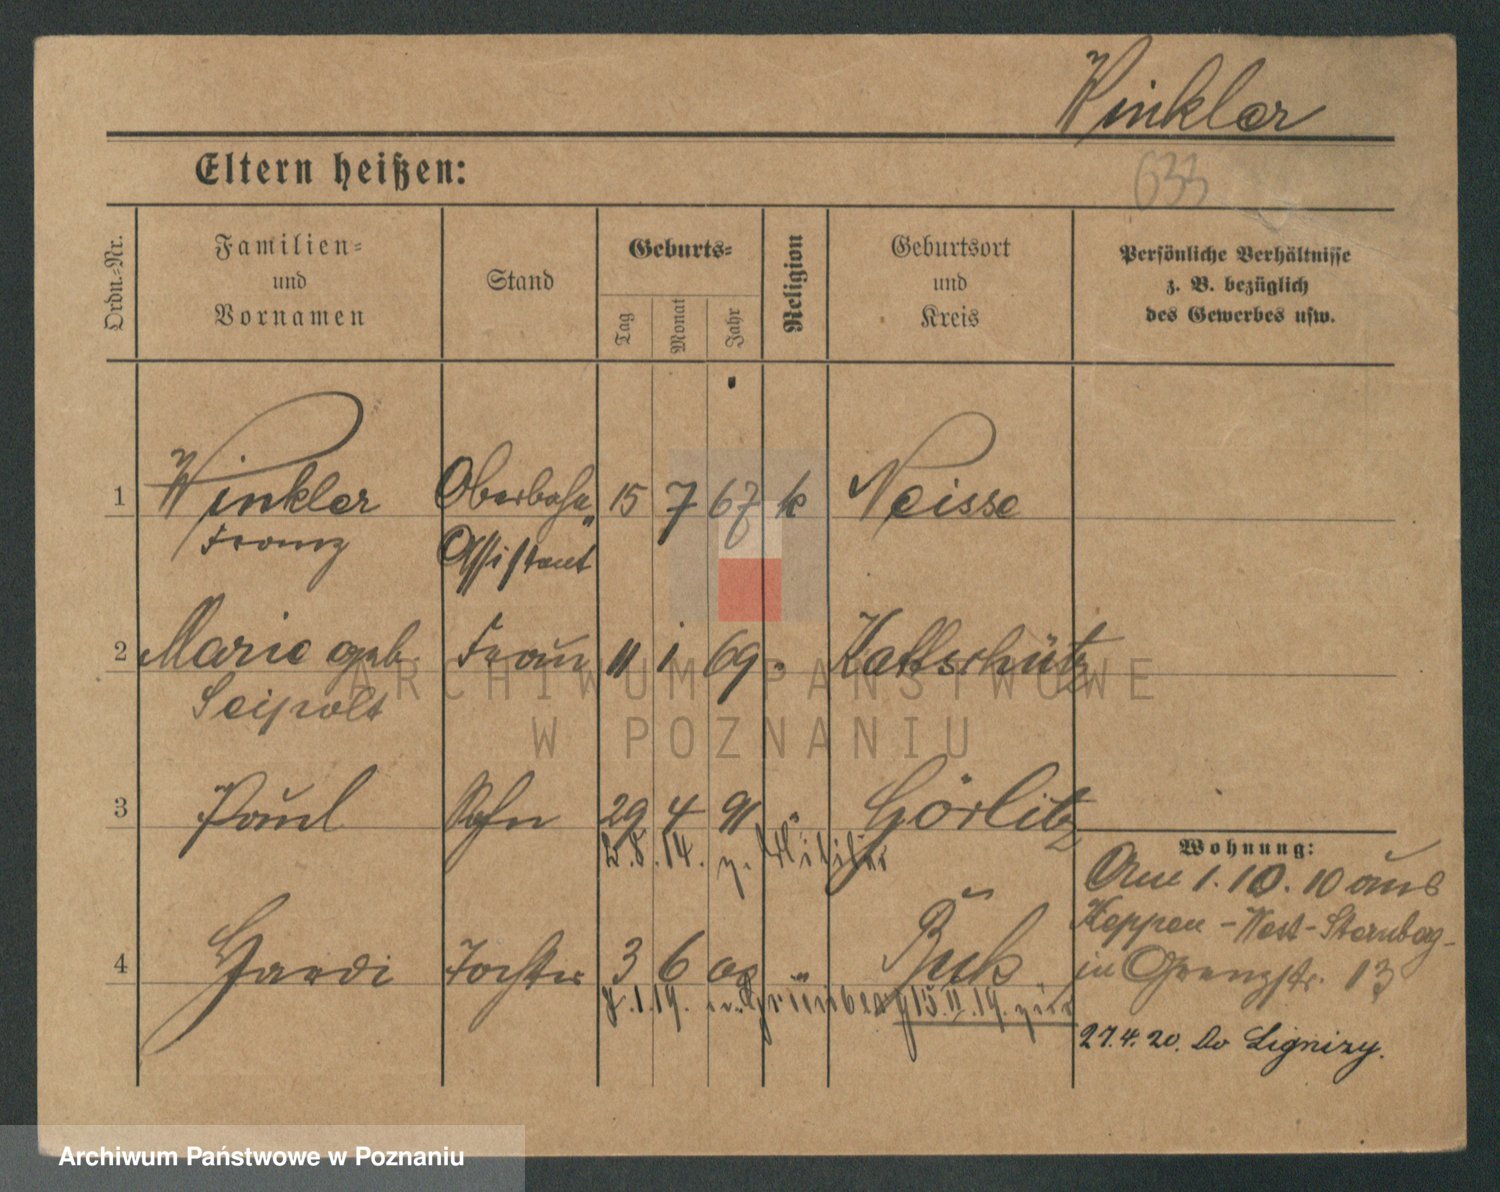 Winkler
Eltern heißen:
633
Ordn.-Nr.
Familien-
und
Vornamen
Stand
Geburts-
Tag
Monat
Jahr
Religion
Geburtsort
und
Kreis
Persönliche Verhältnisse
z. B. bezüglich
des Gewerbes usw.
1 Winkler Oberbahn 15 7 67 k Neisse
Franz Assistent
2 Marie geb. Frau 11 1 69 " Kallschütz
Seipolt
3 Paul Sohn 29 4 91 " Görlitz
2.8.14. z. Militär
Wohnung:
Am 1.10.10 aus
Reppen-West-Sternberg-
in Grenzstr. 13
4 Tochter 3 6 " Buk
8.1.19. n. Grünberg 15.11.19. zur
27.4.20. do Lignizy.
ARCHIWUM PAŃSTWOWE
W POZNANIU
Archiwum Państwowe w Poznaniu